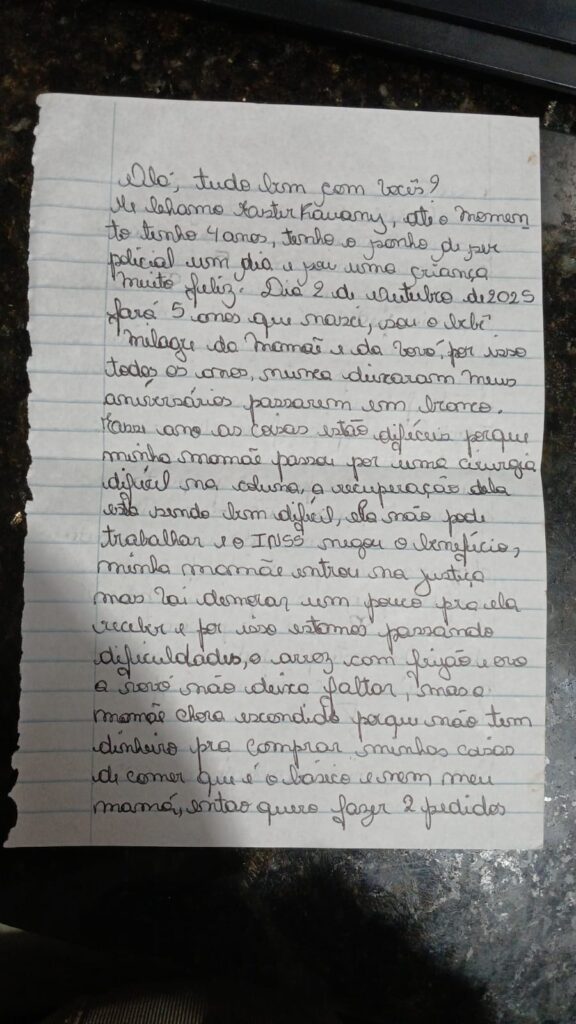 Olá, tudo bem com vocês?
Me chamo Kawany, até o momen
to tenho 4 anos, tenho o sonho de ser
policial um dia e sou uma criança
muito feliz. Dia 2 de outubro de 2025
fará 5 anos que nasci, sou o bebê
"milagre da mamãe e da vovó, por isso
todos os anos, nunca deixaram meus
aniversários passarem em branco.
Esse ano as coisas estão difíceis porque
minha mamãe passou por uma cirurgia
difícil na coluna, a recuperação dela
está sendo bem difícil, ela não pode
trabalhar e o INSS negou o benefício,
minha mamãe entrou na justiça
mas vai demorar um pouco pra ela
receber e por isso estamos passando
dificuldades, o arroz com feijão e ovo
a vovó não deixa faltar, mas a
mamãe chora escondido porque não tem
dinheiro pra comprar minhas coisas
de comer que é o básico e nem meu
mamá, então quero fazer 2 pedidos